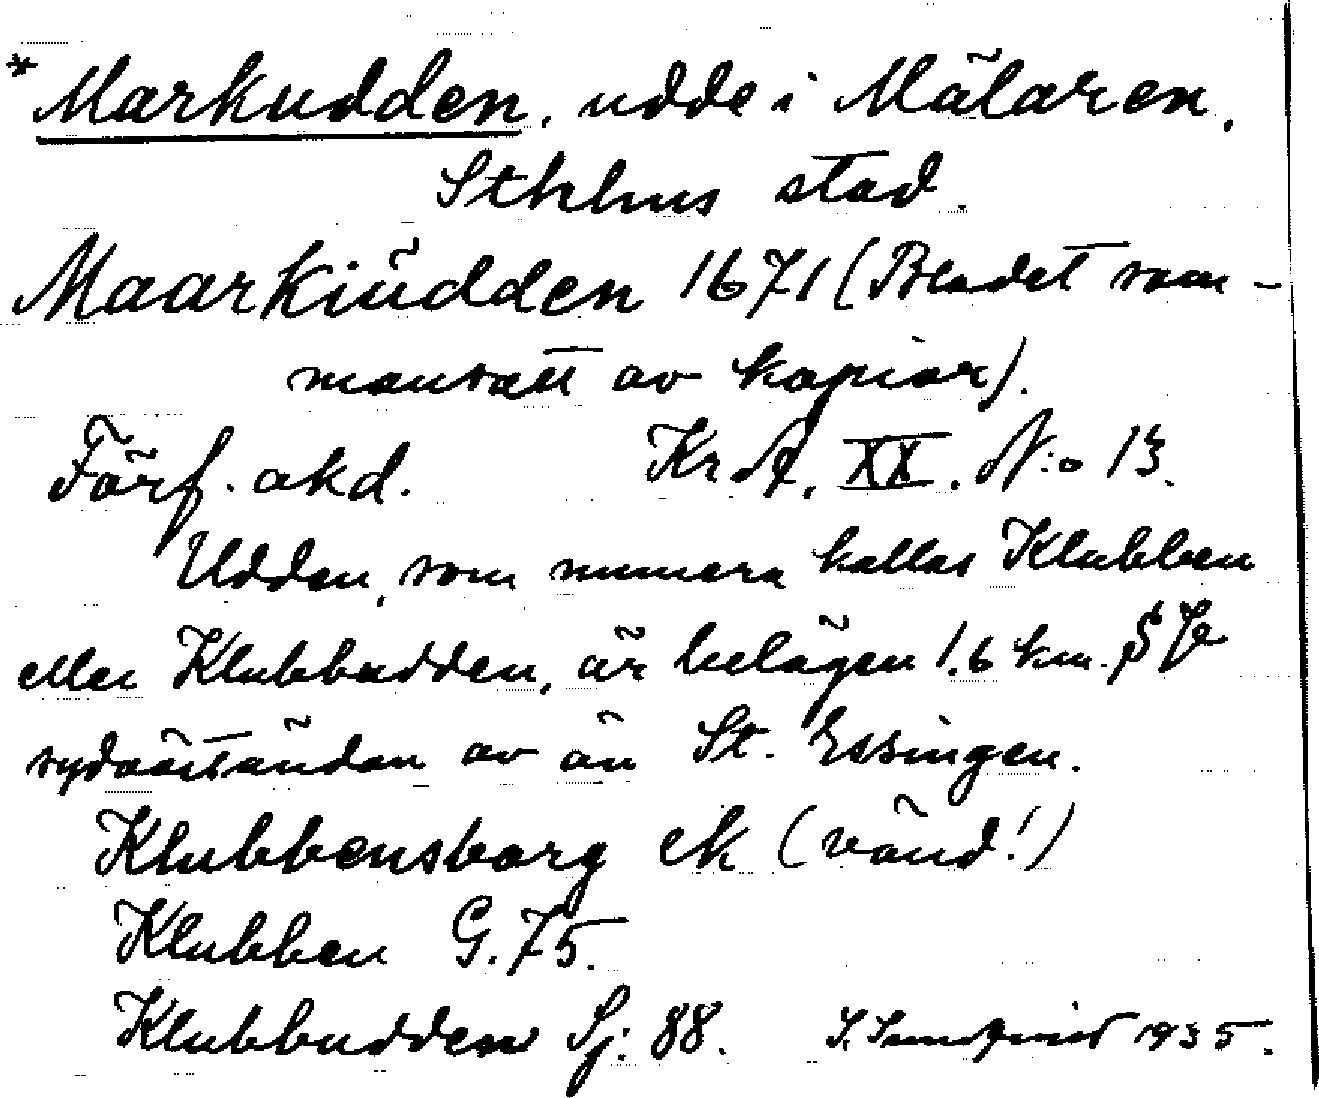 *Markudden, udde i Mälaren.
Sthlms stad.
Maarkiüdden 1671 (Bladet sam-
mansatt av kopior).
Förf. akd. KrA. XX. N:o 13.
Udden, som numera kallas Klubben
eller Klubbudden, är belägen 1,6 km.
sydoständan av ön St. Essingen.
Klubbensborg ek (vänd!)
Klubben G. 75.
Klubbudden Sj. 88. 1935.